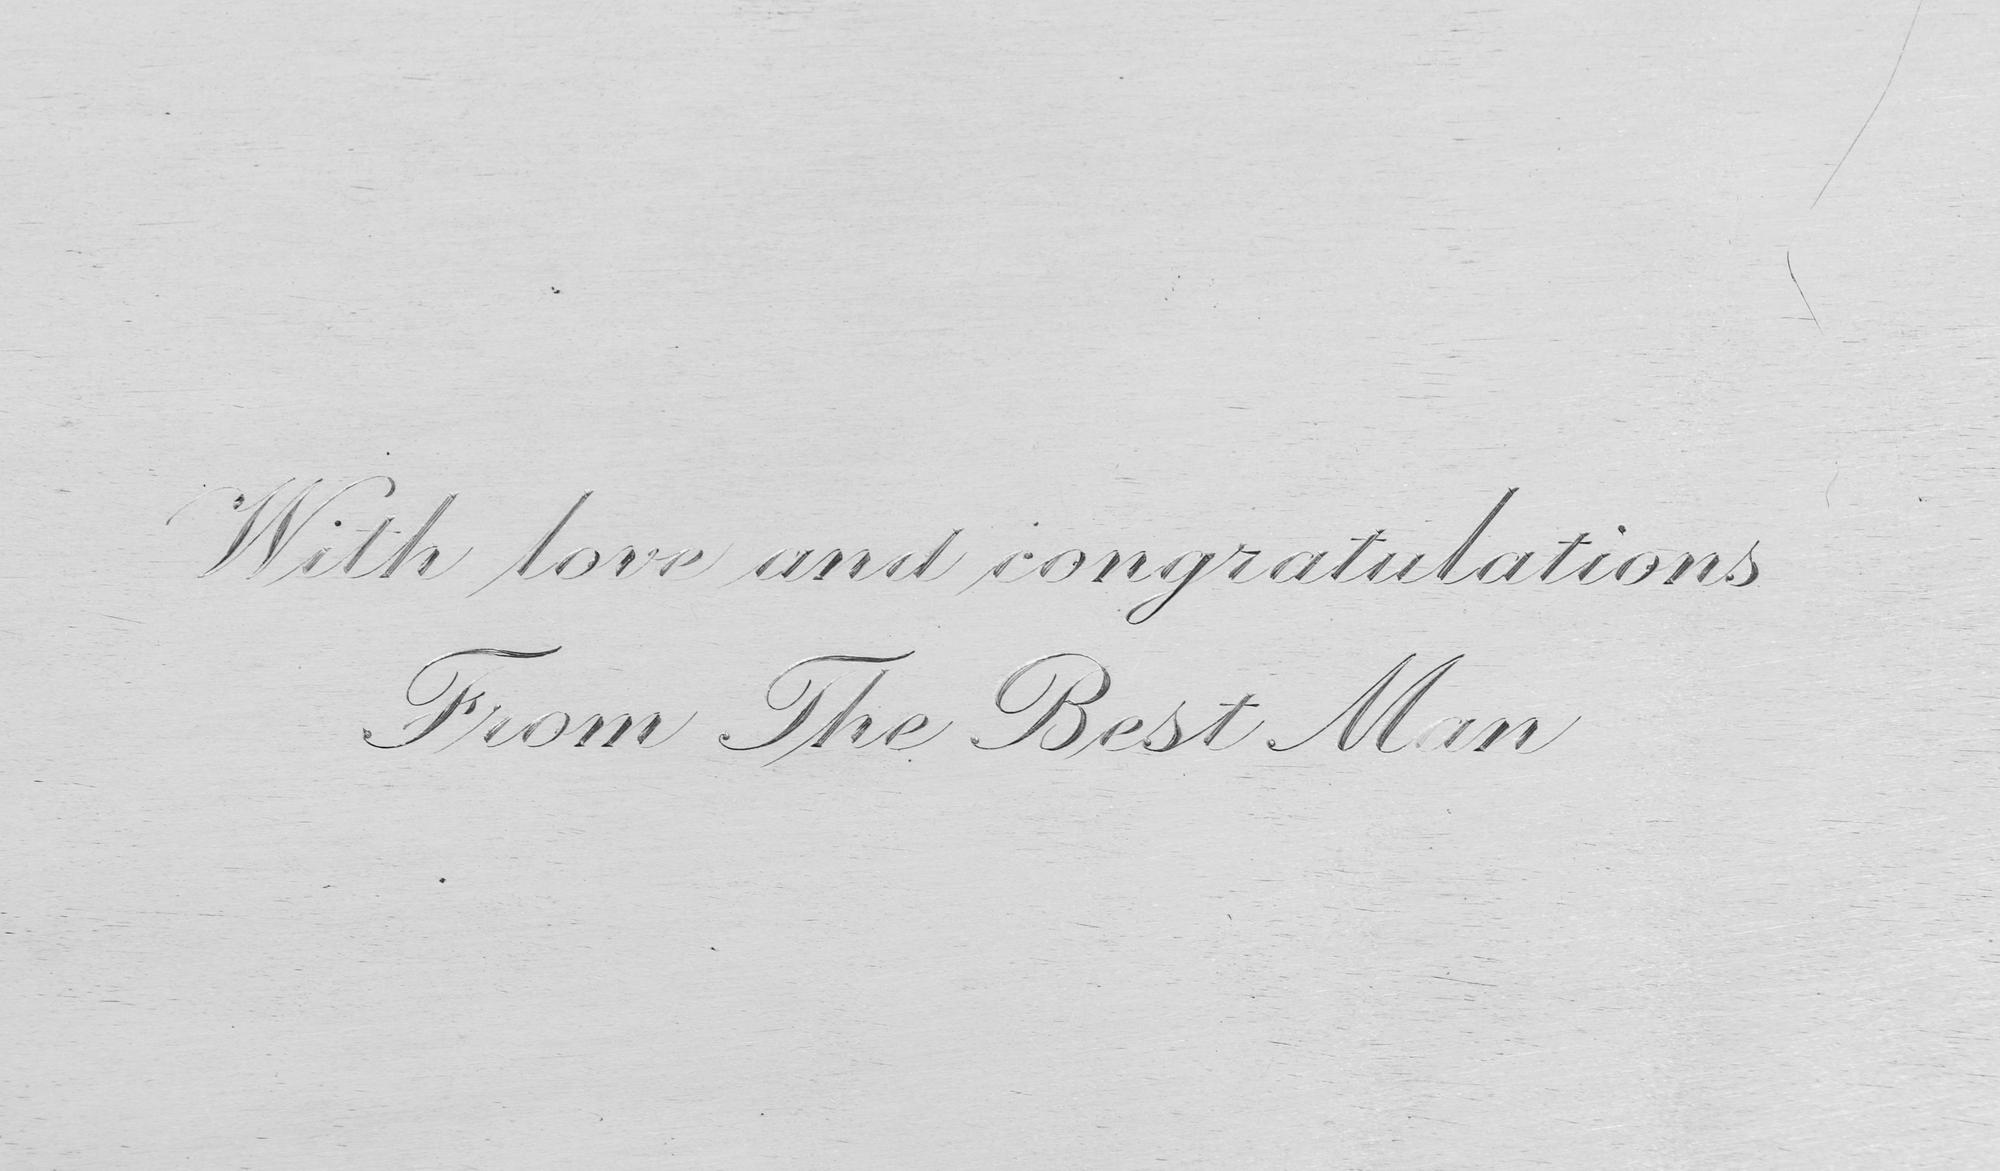 With love and congratulations
From The Best Man